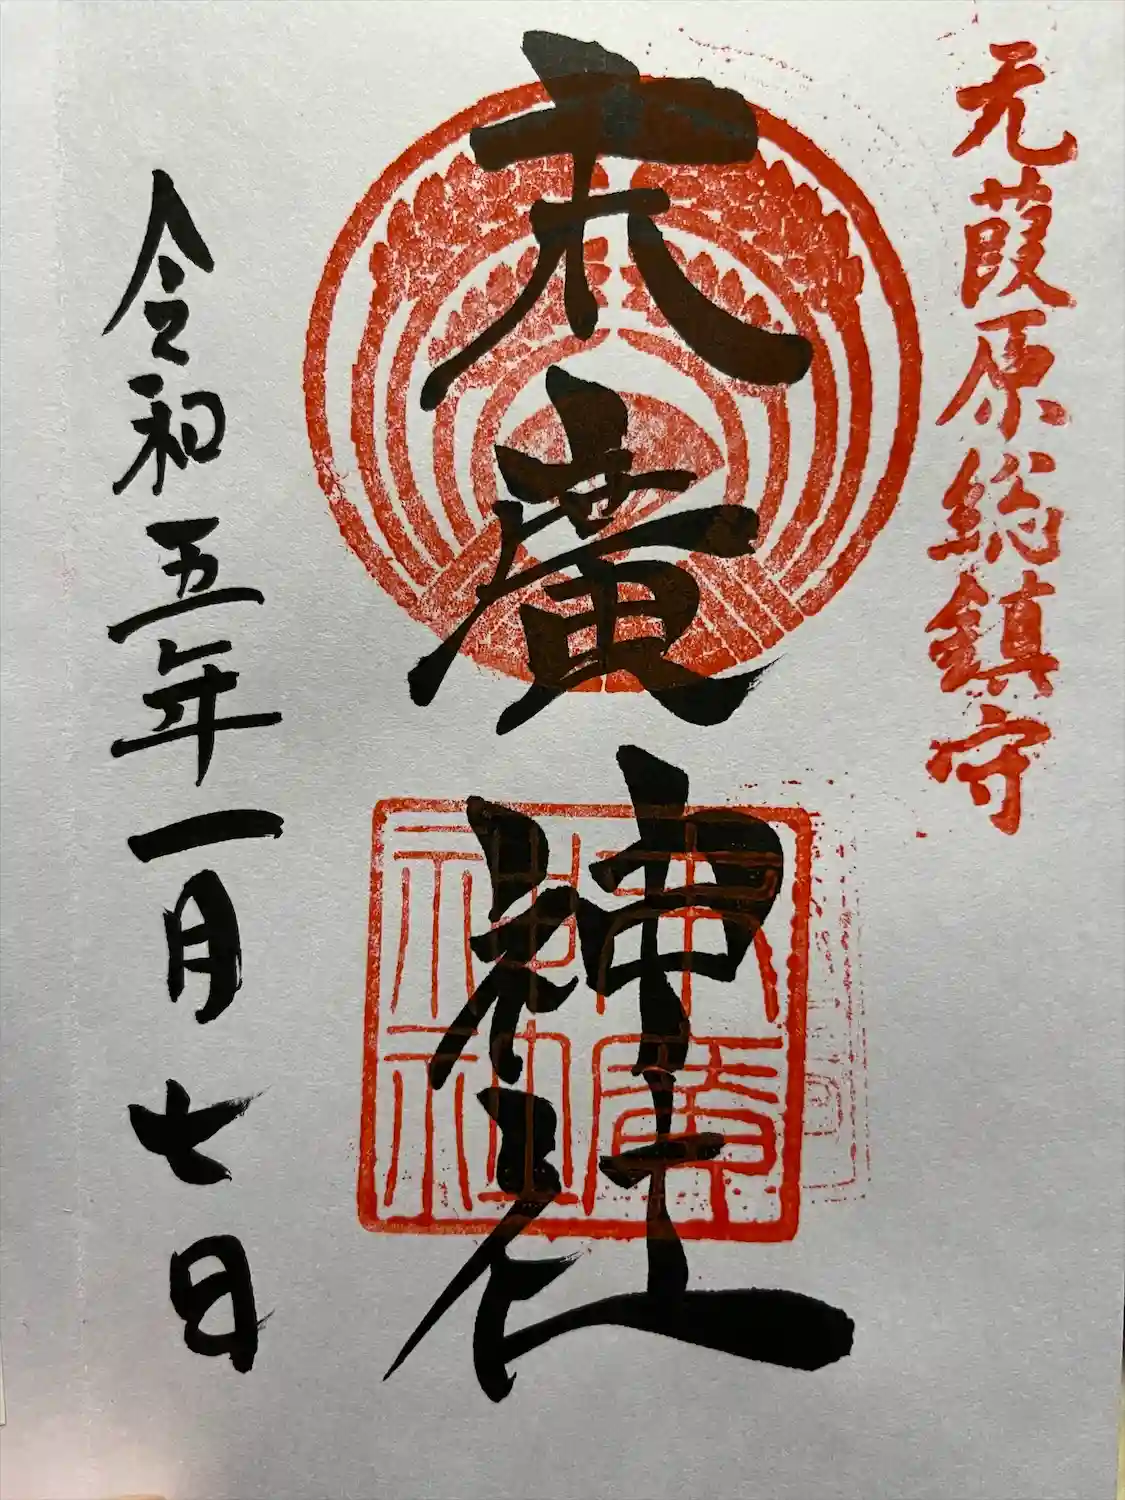 元葭原総鎮守
末廣神社
末廣
神社
令和五年一月七日